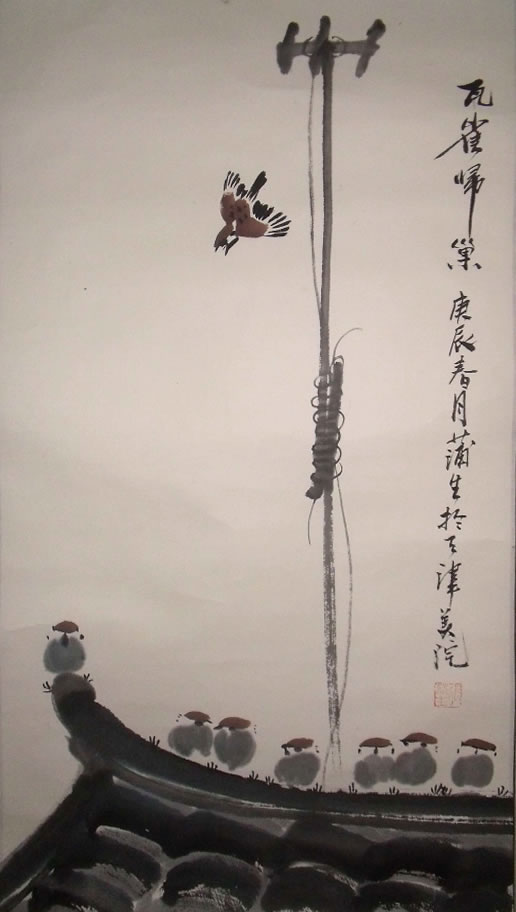 瓦雀归巢 庚辰春月蒲生於天津美院